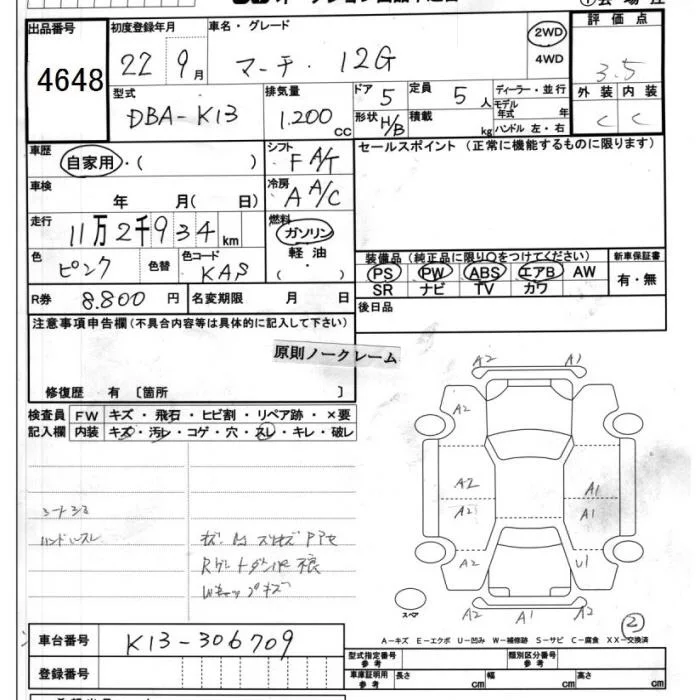 出品番号 4648
初度登録年月 22年 9月
車名・グレード マーチ・12G
2WD
4WD
評価点 3.5
外装 内装
C C
型式 DBA-K13
排気量 1.200 cc
ドア 5
定員 5 人
形状 H/B
積載 kg
ディーラー・並行
モデル年式 年
ハンドル 左・右
車歴 自家用・( )
シフト F A/T
セールスポイント (正常に機能するものに限ります)
車検 年 月( 日)
冷房 A A/C
走行 11万2千934 km
燃料 ガソリン
軽油
( ・ )
色 ピンク 色替 色コード KAS
装備品 (純正品に限り○をつけてください) 新車保証書
PS PW ABS エアB AW
SR ナビ TV カワ
有・無
R券 8.800 円 名変期限 月 日
後日品
注意事項申告欄 (不具合内容等は具体的に記入して下さい)
原則ノークレーム
修復歴 有 〔箇所 〕
検査員 FW キズ・飛石・ヒビ割・リペア跡・×要
記入欄 内装 キズ・汚レ・コゲ・穴・スレ・キレ・破レ
A2 A1
A2
A2 A1
A2 A1
A2 U1
A2 A1 A2
スペア
2
シートシミ
ハンドルスレ
Wキャップキズ
A-キズ E-エクボ U-凹み W-補修跡 S-サビ C-腐食 XX-交換済
車台番号 K13-306709
型式指定番号 参考 類別区分番号 参考
登録番号
車庫証明用 参考 長さ cm 幅 cm 高さ cm